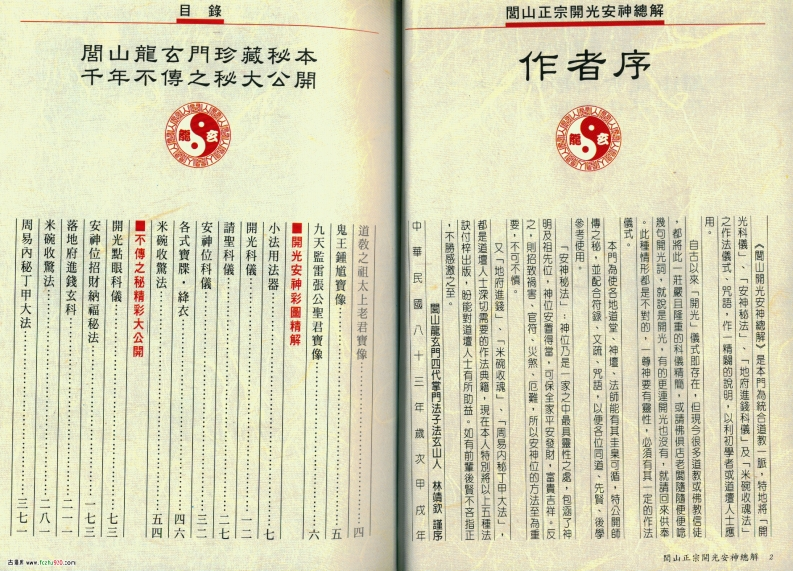 閭山正宗開光安神總解
作者序
龍 玄
《閭山開光安神總解》是本門為統合道教一脈，特地將「開
光科儀」、「安神秘法」、「地府進錢科儀」及「米碗收魂法」
之作法儀式、咒語，作一精闢的說明，以利初學者或道壇人士應
用。
自古以來「開光」儀式即存在，但現今很多道教或佛教信徒
，都將此一莊嚴且隆重的科儀精簡，或請佛俱店老闆隨隨便便諗
幾句開光詞，就說是開光，有的更連開光也沒有，就請回來供奉
。此種情形都是不對的，一尊神要有靈性，必須有其一定的作法
儀式。
本門為使各地道堂、神壇、法師能有其圭臬可循，特公開師
傳之秘，並配合符錄、文疏、咒語，以便各位同道、先賢、後學
參考使用。
「安神秘法」：神位乃是一家之中最具靈性之處，包涵了神
明及祖先位，神位安置得當，可保全家平安發財，富貴吉祥。反
之，則招致禍害、官符、災煞、厄難，所以安神位的方法至為重
要，不可不慎。
又「地府進錢」、「米碗收魂」、「周易內秘丁甲大法」，
都是道壇人士深切需要的作法典籍，現在本人特別將以上五種法
訣付梓出版，盼能對道壇人士有所助益。如有前輩後賢不吝指正
，不勝感激之至。
閭山龍玄門四代掌門法子法玄山人 林靖欽 謹序
中華民國八十三年歲次甲戌年
閭山正宗開光安神總解 2
目錄
閭山龍玄門珍藏秘本
千年不傳之秘大公開
龍 玄
道教之祖太上老君寶像………四
鬼王鍾馗寶像………五
九天監雷張公聖君寶像………六
■開光安神彩圖精解
小法用法器………七
開光科儀………一二
請聖科儀………二七
安神位科儀………三二
各式寶牒・絳衣………四六
米碗收驚法………五四
■不傳之秘精彩大公開
開光點眼科儀………七三
安神位招財納福秘法………一七三
落地府進錢玄科………二一一
米碗收驚法………二八一
周易內秘丁甲大法………三七一
古籍网 www.fczhu920.com